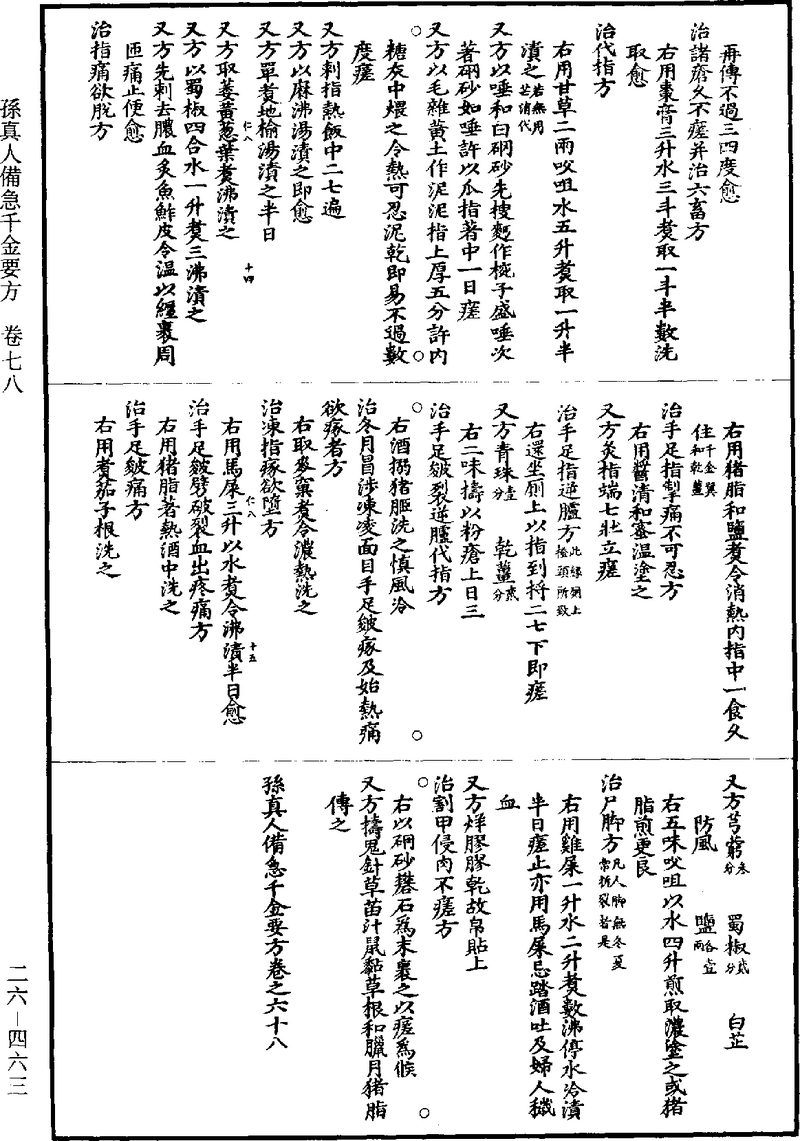 再傅不過三四度愈
治諸瘡久不瘥并治六畜方
右用棗膏三升水三斗煑取一斗半數洗
取愈
治代指方
右用甘草二兩㕮咀水五升煑取一升半
漬之若無用芒消代
又方以唾和白硇砂先搜麪作椀子盛唾次
著硇砂如唾許以爪指著中一日瘥
又方以毛雜黃土作泥泥指上厚五分許内
煻灰中煨之令熱可忍泥乾即易不過數
度瘥
又方刺指熱飯中二七遍
又方以麻沸湯漬之即愈
又方單煑地榆湯漬之半日
仁八 十四
又方取萎黃葱葉煑沸漬之
又方以蜀椒四合水一升煑三沸漬之
又方先刺去膿血炙魚鮓皮令温以纏裹周
匝痛止便愈
治指痛欲脱方
右用猪脂和鹽煑令消熱内指中一食久
住千金翼和乾薑
治手足指掣痛不可忍方
右用醬清和蜜温塗之
又方炙指端七壯立瘥
治手足指逆臚方此緣厠上接頭所致
右還坐厠上以指到捋二七下即瘥
又方青珠壹分 乾薑貳分
右二味擣以粉瘡上日三
治手足皴裂逆臚代指方
右酒搦猪胰洗之慎風冷
治冬月冒涉凍凌面目手足皴瘃及始熱痛
欲瘃者方
右取麥窠煑令濃熱洗之
治凍指瘃欲墮方
仁八 十五
右用馬屎三升以水煑令沸漬半日愈
治手足皴劈破裂血出疼痛方
右用猪脂著熱酒中洗之
治手足皴痛方
右用煑茄子根洗之
又方芎藭叁分 蜀椒貳分 白芷
防風 鹽各壹兩
右五味㕮咀以水四升煎取濃塗之或猪
脂煎更良
治尸脚方凡人脚無冬夏常拆裂者是
右用雞屎一升水二升煑數沸停水冷漬
半日瘥止亦用馬屎忌踏酒吐及婦人穢
血
又方烊膠膠乾故帛貼上
治割甲侵肉不瘥方
右以硇砂礬石爲末裹之以瘥爲候
又方擣鬼針草苗汁鼠黏草根和臘月猪脂
傅之
孫真人備急千金要方卷之六十八
孫真人備急千金要方 卷七八
二六—四六三